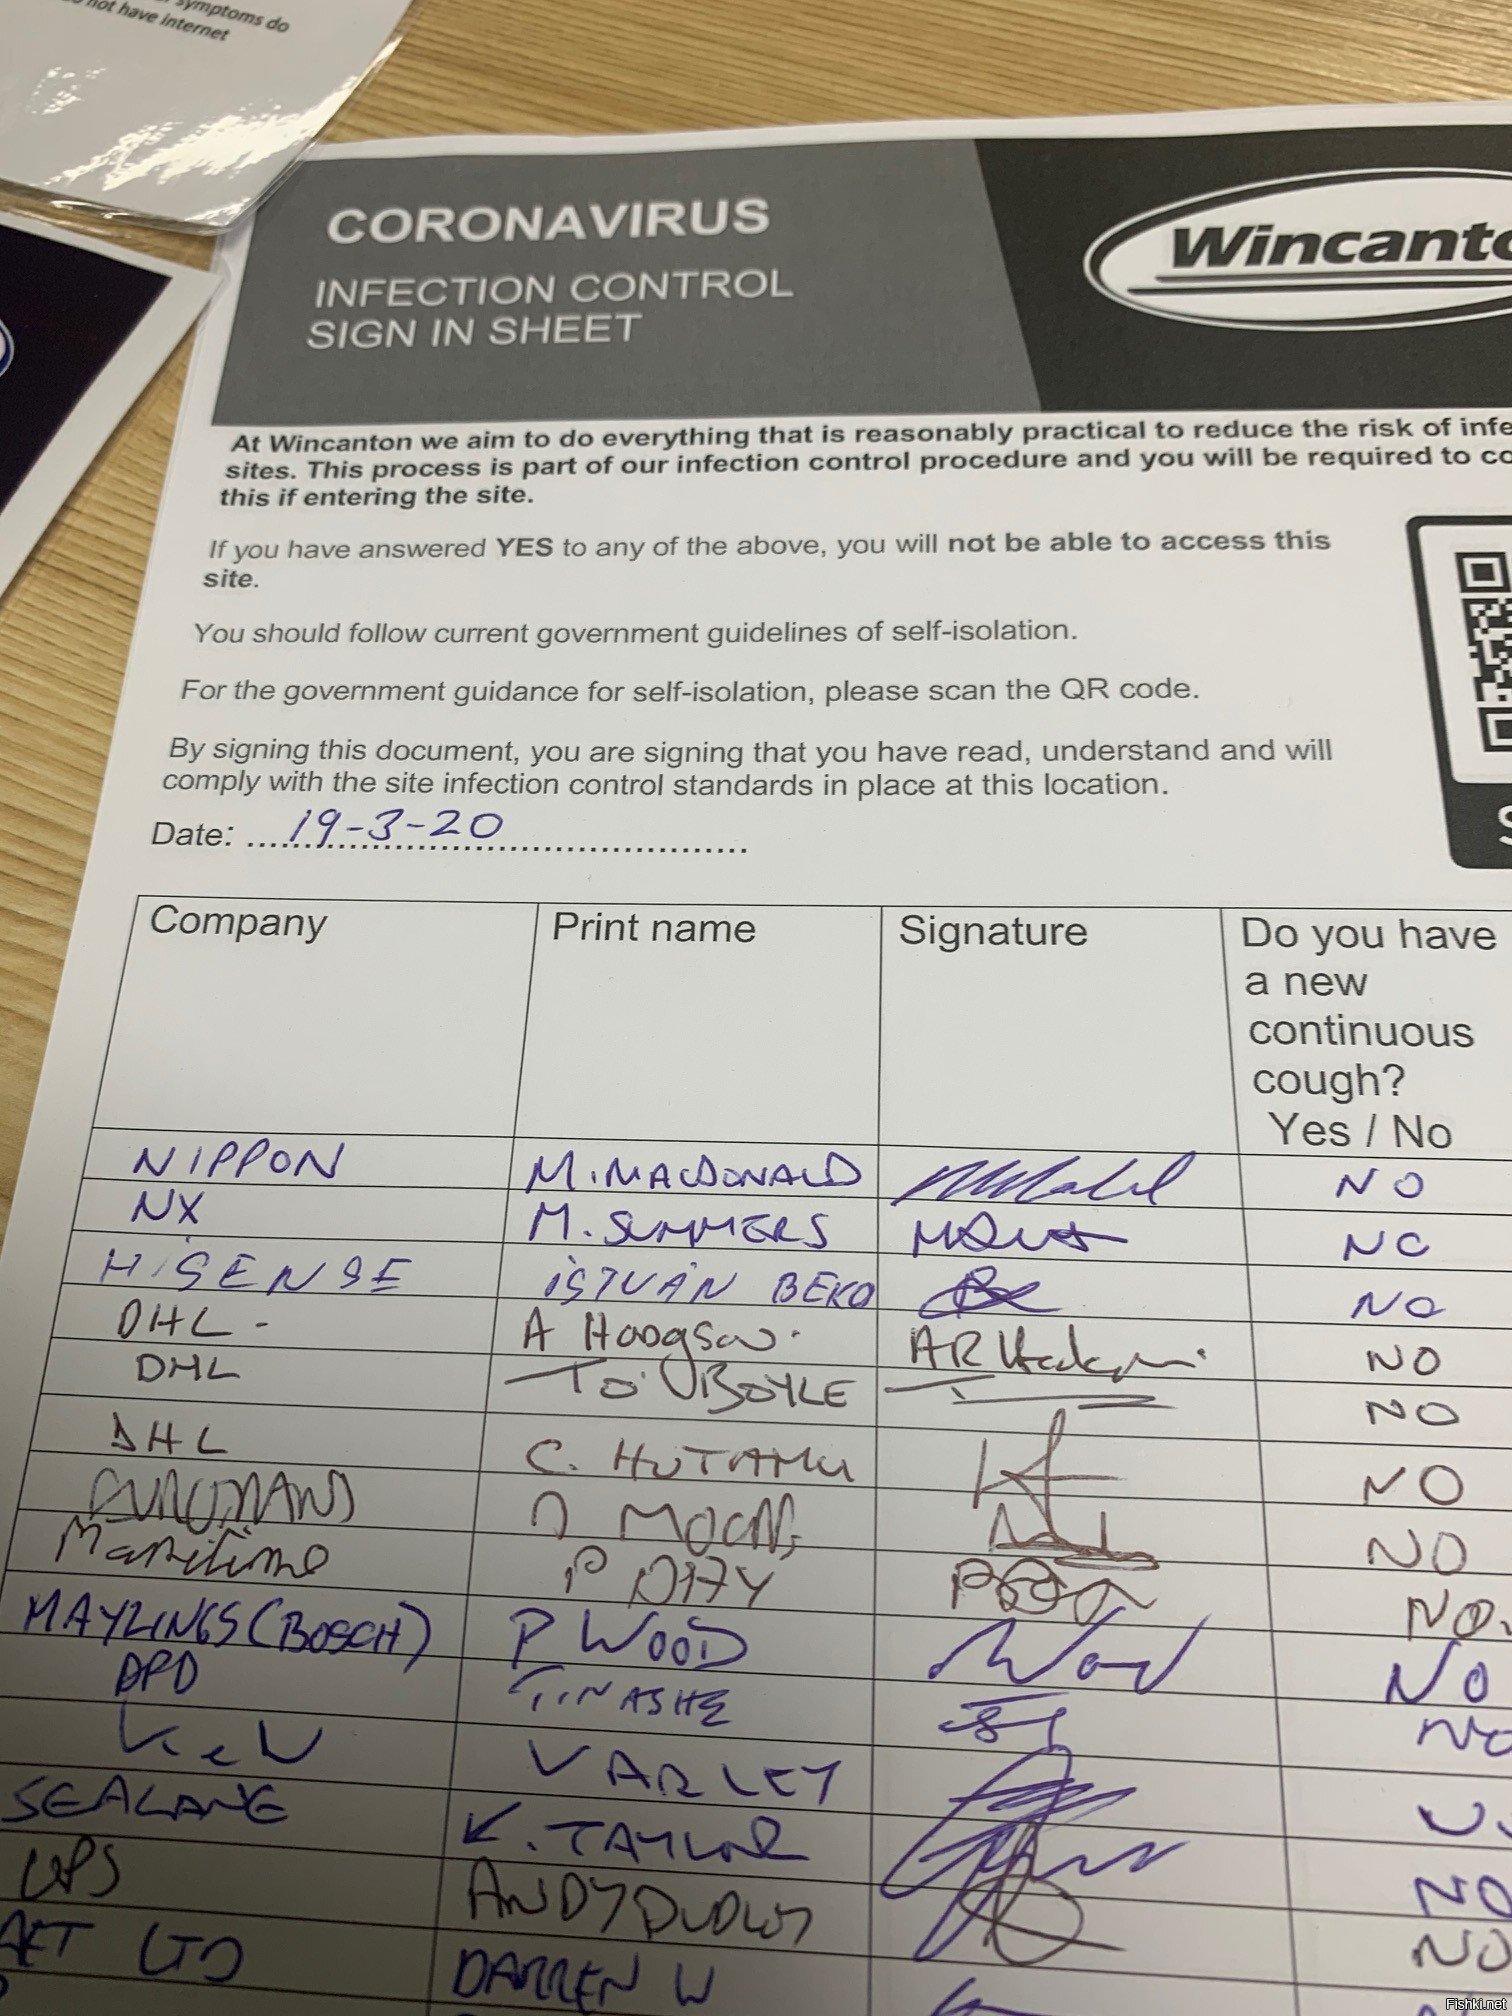 symptoms do
not have internet
CORONAVIRUS
INFECTION CONTROL
SIGN IN SHEET
Wincanto
At Wincanton we aim to do everything that is reasonably practical to reduce the risk of infe
sites. This process is part of our infection control procedure and you will be required to co
this if entering the site.
If you have answered YES to any of the above, you will not be able to access this
site.
You should follow current government guidelines of self-isolation.
For the government guidance for self-isolation, please scan the QR code.
By signing this document, you are signing that you have read, understand and will
comply with the site infection control standards in place at this location.
S
Date: 19-3-20
Company Print name Signature Do you have
a new
continuous
cough?
Yes / No
NIPPON M. MACDONALD NO
NX M. SUMMERS NO
HISENSE ISTVÁN BEKO NO
DHL - A Hodgson. NO
DHL BOYLE NO
DHL C. HUTAMU NO
NO
Maritime P NO.
MAYLINGS (BOSCH) P WOOD Wood NO
DPD TINASHE NO
K & N VARLEY
SEALANE K. TAYLOR NO
UPS ANDY DUDLEY NO
LTD DARREN W
Fishki.net